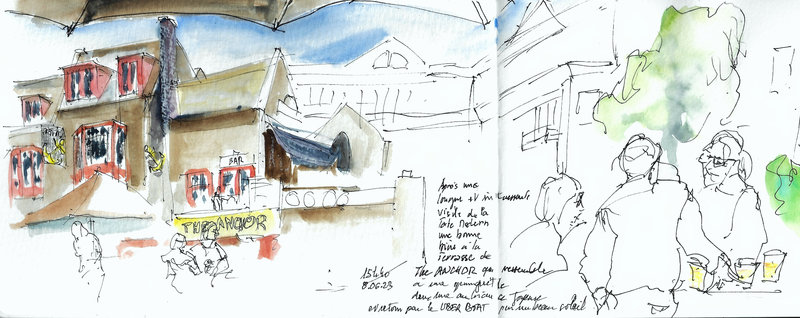 BAR
THE ANCHOR
Après une
longue et intéressante
visite de la
Tate Modern
une bonne
bière à la
terrasse de
The ANCHOR qui ressemble
à une guinguette
dans une ambiance joyeuse
et retour par le UBER BOAT par un beau soleil
15h30
8.06.23